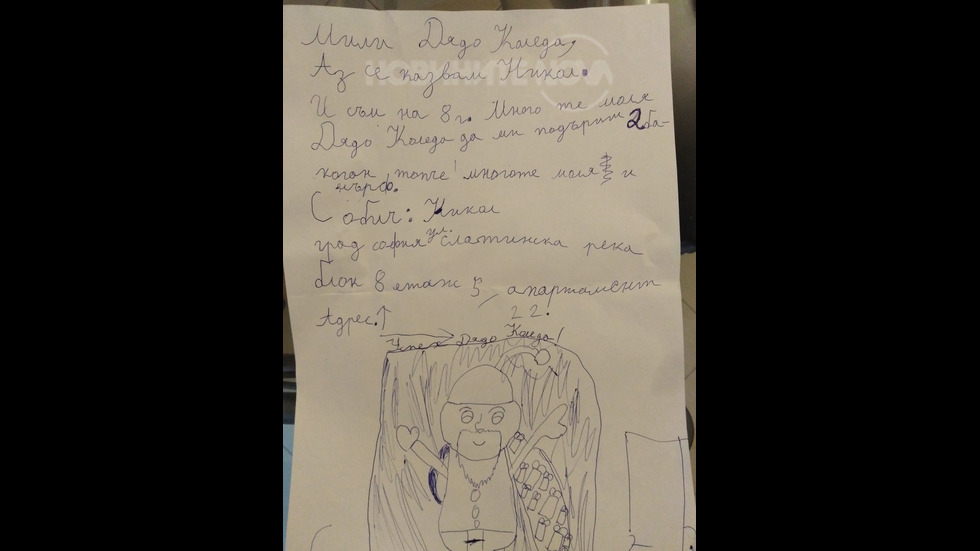 Мили Дядо Коледа,
Аз се казвам Никол.
И съм на 8 г. Много те моля
Дядо Коледа да ми подъриш 2 ба-
коган топче! многоте моля и
нърф.
С обич: Никол
град софия ул. слатинска река
блок 8 етаж 5, апартамент
22!
Адрес.↑
Успех Дядо Коледа!